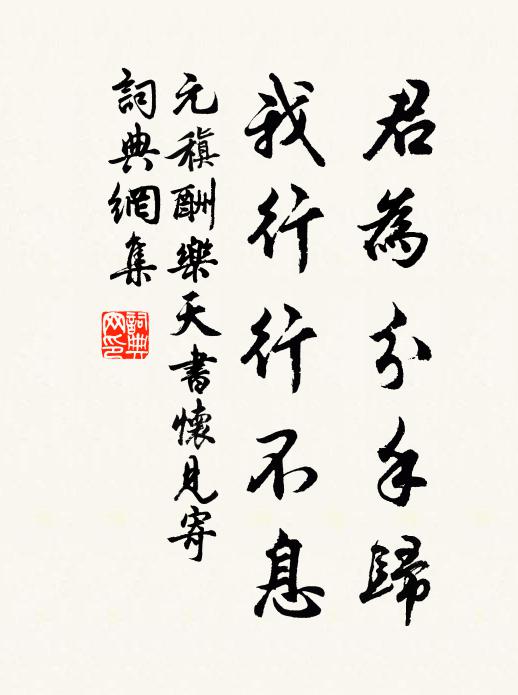 君為分手歸
我行行不息
元稹酬樂天書懷見寄
詞典網集
詞典網印